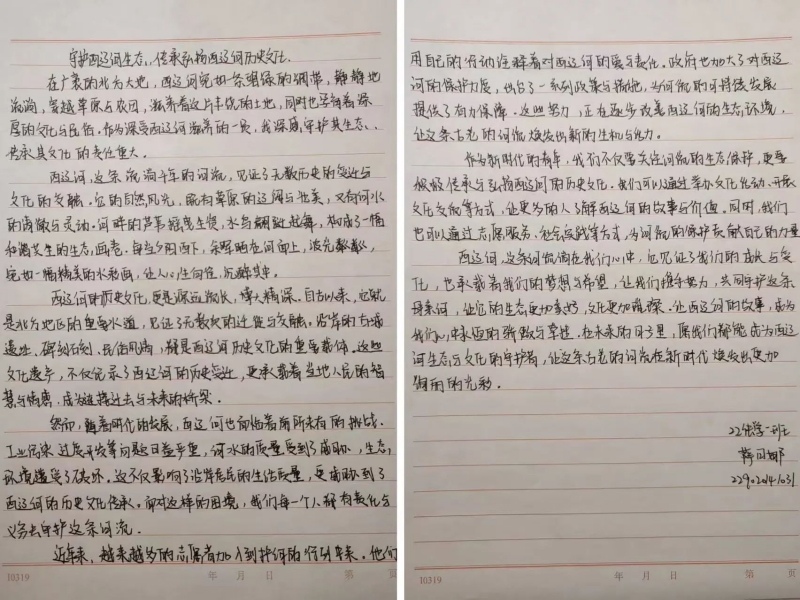 守护西辽河生态，传承弘扬西辽河历史文化
在广袤的北方大地，西辽河宛如一条翠绿的绸带，静静地
流淌，穿越草原与农田，滋养着这片丰饶的土地，同时也孕育着深
厚的文化与民俗。作为深受西辽河滋养的一员，我深感守护其生态、
传承其文化的责任重大。
西辽河，这条流淌千年的河流，见证了无数历史的变迁与
文化的交融。它的自然风光，既有草原的辽阔与壮美，又有河水
的清澈与灵动。河畔的芦苇摇曳生姿，水鸟翩跹起舞，构成了一幅
和谐共生的生态画卷。每当夕阳西下，余晖洒在河面上，波光粼粼，
宛如一幅精美的水彩画，让人心生向往，沉醉其中。
西辽河的历史文化，更是源远流长，博大精深。自古以来，它就
是北方地区的重要水道，见证了无数次的迁徙与交融。沿岸的古城
遗址、碑刻石刻、民俗风情，都是西辽河历史文化的重要载体。这些
文化遗产，不仅记录了西辽河的历史变迁，更承载着当地人民的智
慧与情感，成为连接过去与未来的桥梁。
然而，随着时代的发展，西辽河也面临着前所未有的挑战。
工业污染、过度开发等问题日益严重，河水的质量受到了威胁，生态
环境遭受了破坏。这不仅影响了沿岸居民的生活质量，更威胁到了
西辽河的历史文化传承。面对这样的困境，我们每一个人都有责任与
义务去守护这条河流。
近年来，越来越多的志愿者加入到护河的行列中来。他们
用自己的行动诠释着对西辽河的爱与责任。政府也加大了对西辽
河的保护力度，出台了一系列政策与措施，为河流的可持续发展
提供了有力保障。这些努力，正在逐步改善西辽河的生态环境，
让这条古老的河流焕发出新的生机与活力。
作为新时代的青年，我们不仅要关注河流的生态保护，更要
积极传承与弘扬西辽河的历史文化。我们可以通过举办文化活动、开展
文化交流等方式，让更多的人了解西辽河的故事与价值。同时，我们
也可以通过志愿服务、社会实践等方式，为河流的保护贡献自己的力量
西辽河，这条河流淌在我们心中，它见证了我们的成长与变
化，也承载着我们的梦想与希望。让我们携手努力，共同守护这条
母亲河，让它的生态更加美好，文化更加璀璨。让西辽河的故事，成为
我们心中永恒的骄傲与荣耀。在未来的日子里，愿我们都能成为西辽
河生态与文化的守护者，让这条古老的河流在新时代焕发出更加
绚丽的光彩。
22化学一班
2290204031
10319 年 月 日 第 页
10319 年 月 日 第 页